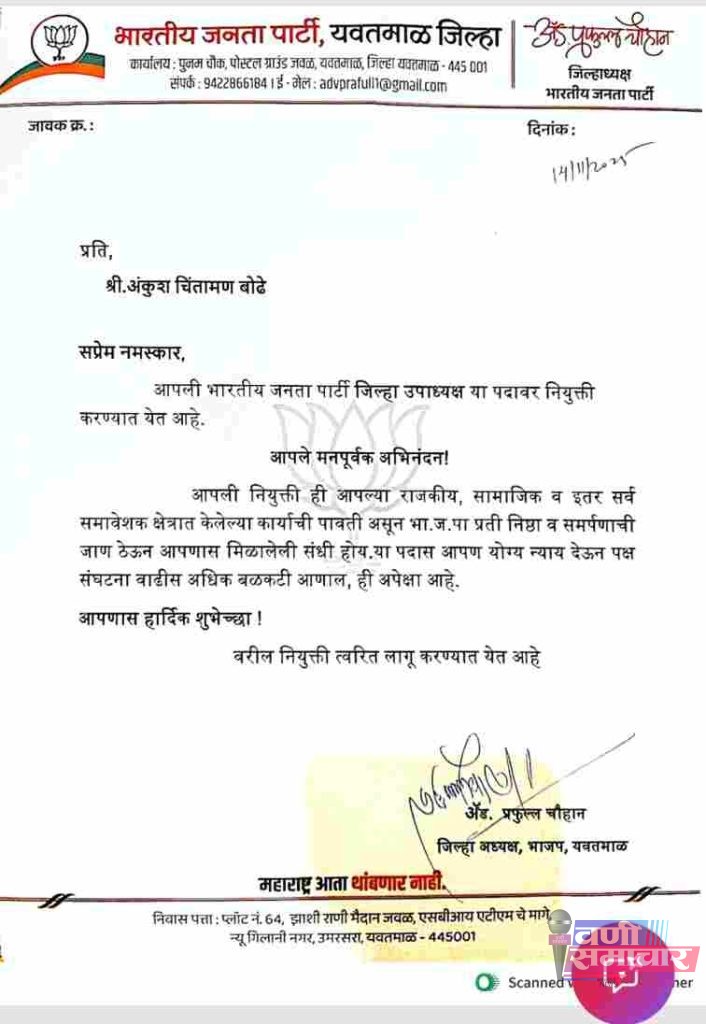 भारतीय जनता पार्टी, यवतमाळ जिल्हा
कार्यालय : पुनम चौक, पोस्टल ग्राउंड जवळ, यवतमाळ, जिल्हा यवतमाळ - 445 001
संपर्क : 9422866184 । ई - मेल : advprafull1@gmail.com
ॲड. प्रफुल्ल चौहान
जिल्हाध्यक्ष
भारतीय जनता पार्टी
जावक क्र. :
दिनांक :
14/11/2025
प्रति,
श्री.अंकुश चिंतामण बोढे
सप्रेम नमस्कार,
आपली भारतीय जनता पार्टी जिल्हा उपाध्यक्ष या पदावर नियुक्ती
करण्यात येत आहे.
आपले मनपूर्वक अभिनंदन!
आपली नियुक्ती ही आपल्या राजकीय, सामाजिक व इतर सर्व
समावेशक क्षेत्रात केलेल्या कार्याची पावती असून भा.ज.पा प्रती निष्ठा व समर्पणाची
जाण ठेऊन आपणास मिळालेली संधी होय.या पदास आपण योग्य न्याय देऊन पक्ष
संघटना वाढीस अधिक बळकटी आणाल, ही अपेक्षा आहे.
आपणास हार्दिक शुभेच्छा !
वरील नियुक्ती त्वरित लागू करण्यात येत आहे
ॲड. प्रफुल्ल चौहान
जिल्हा अध्यक्ष, भाजप, यवतमाळ
महाराष्ट्र आता थांबणार नाही.
निवास पत्ता : प्लॉट नं. 64, झाशी राणी मैदान जवळ, एसबीआय एटीएम चे मागे,
न्यू गिलानी नगर, उमरसरा, यवतमाळ - 445001
वणी
समाचार
Scanned